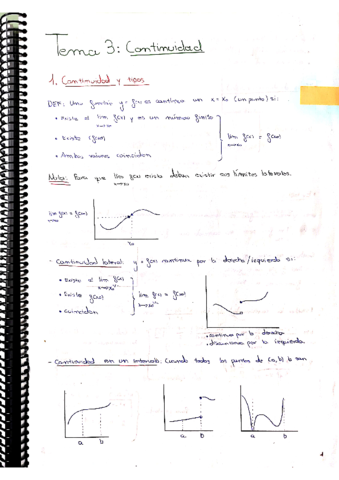 Tema 3: Continuidad
1. Continuidad y tipos
DEF: Una función y = f(x) es continua en x = x₀ (un punto) si:
• Existe el lim f(x) y es un número finito
x→x₀
• Existe f(x₀)
lim f(x) = f(x₀)
x→x₀
• Ambos valores coinciden
Nota: Para que lim f(x) exista deben existir sus límites laterales.
x→x₀
lim f(x) = f(x₀)
x→x₀
x₀
- Continuidad lateral: y = f(x) continua por la derecha/izquierda si:
• Existe el lim f(x)
• Existe f(x₀)
lim f(x) = f(x₀)
• Coinciden
• continua por la derecha
• discontinua por la izquierda
- Continuidad en un intervalo. Cuando todos los puntos de (a, b) lo son
a b
a b
a b
1